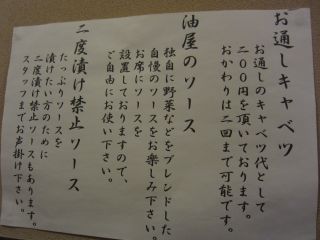 お通しキャベツ
お通しのキャベツ代として
二〇〇円を頂いております。
おかわりは二回まで可能です。
油屋のソース
独自に野菜などをブレンドした
自慢のソースをお楽しみ下さい。
お席にソースを
設置しておりますので、
ご自由にお使い下さい。
二度漬け禁止ソース
たっぷりソースを
漬けたい方のために
二度漬け禁止ソースもあります。
スタッフまでお声掛け下さい。